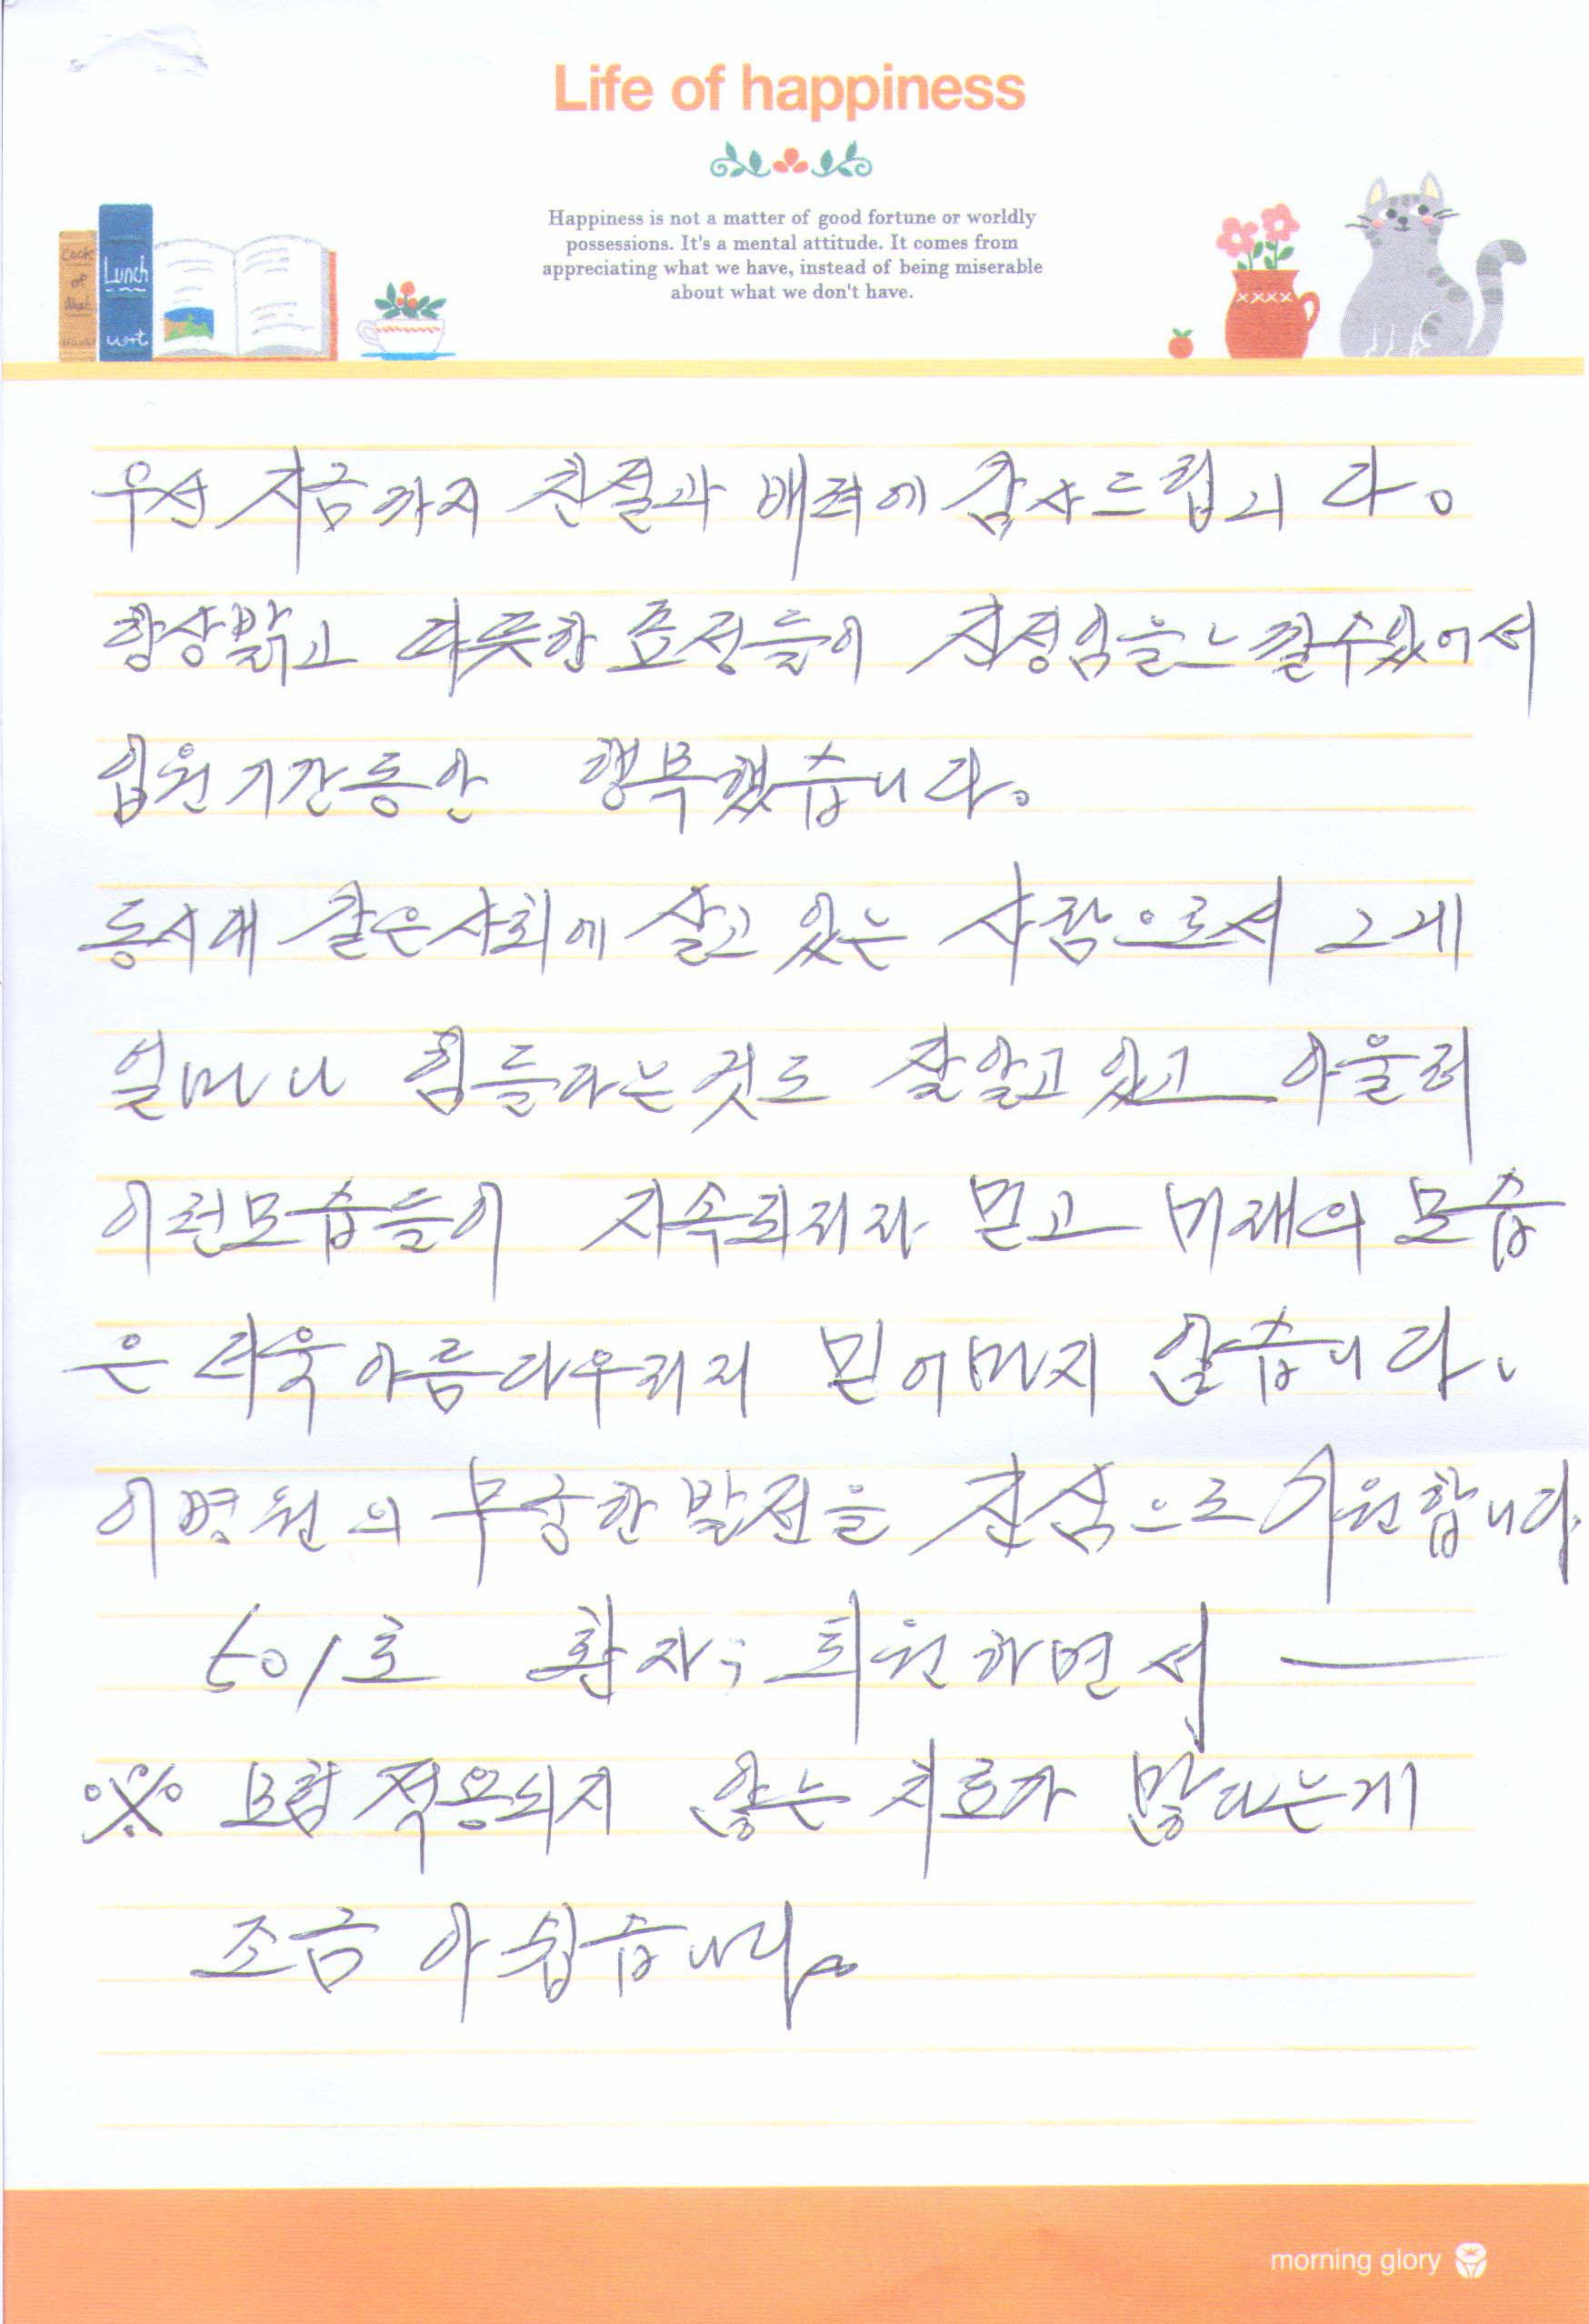 Life of happiness
Happiness is not a matter of good fortune or worldly
possessions. It's a mental attitude. It comes from
appreciating what we have, instead of being miserable
about what we don't have.
Lunch
우선 지금까지 친절과 배려에 감사드립니다.
항상밝고 따뜻한 표정들이 진정임을느낄수있어서
입원기간동안 행복했습니다.
동시대 같은사회에 살고 있는 사람으로서 그게
얼마나 힘들다는것도 잘알고있고 아울러
이런모습들이 지속되리라 믿고 미래의 모습
은 더욱 아름다우리라 믿어마지 않습니다.
이병원의 무궁한발전을 진심으로 기원합니다.
501호 환자; 퇴원하면서 —
※ 보험 적용되지 않는 치료가 많다는게
조금 아쉽습니다.
morning glory